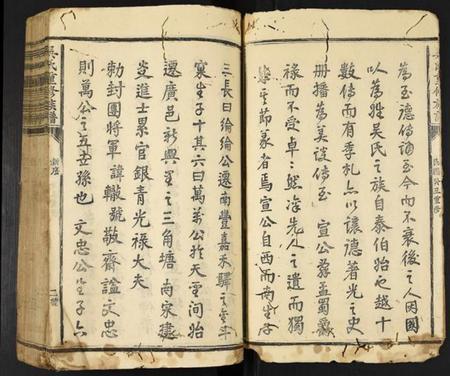 為至德傳詢至今而不衰後之人因國
以為姓吳氏之族自泰伯始也越十
數傳而有季札公以讓德著光之史
冊播為美談傳至 宣公蔡孟蜀爵
祿而不受卓之然洗先人之遺而獨
之節義者焉宣公自西而南生子
三長曰綸綸公遷南豐嘉禾驛之
裏生子十其六曰萬萬公於天聖間始
遷廣邑新興里之三角塘南家建
炎進士累官銀青光祿大夫
勅封團將軍諱轍號敬齋諡文忠
則萬公之五世孫也 文忠公生子六
吳氏重修族譜
新序
二